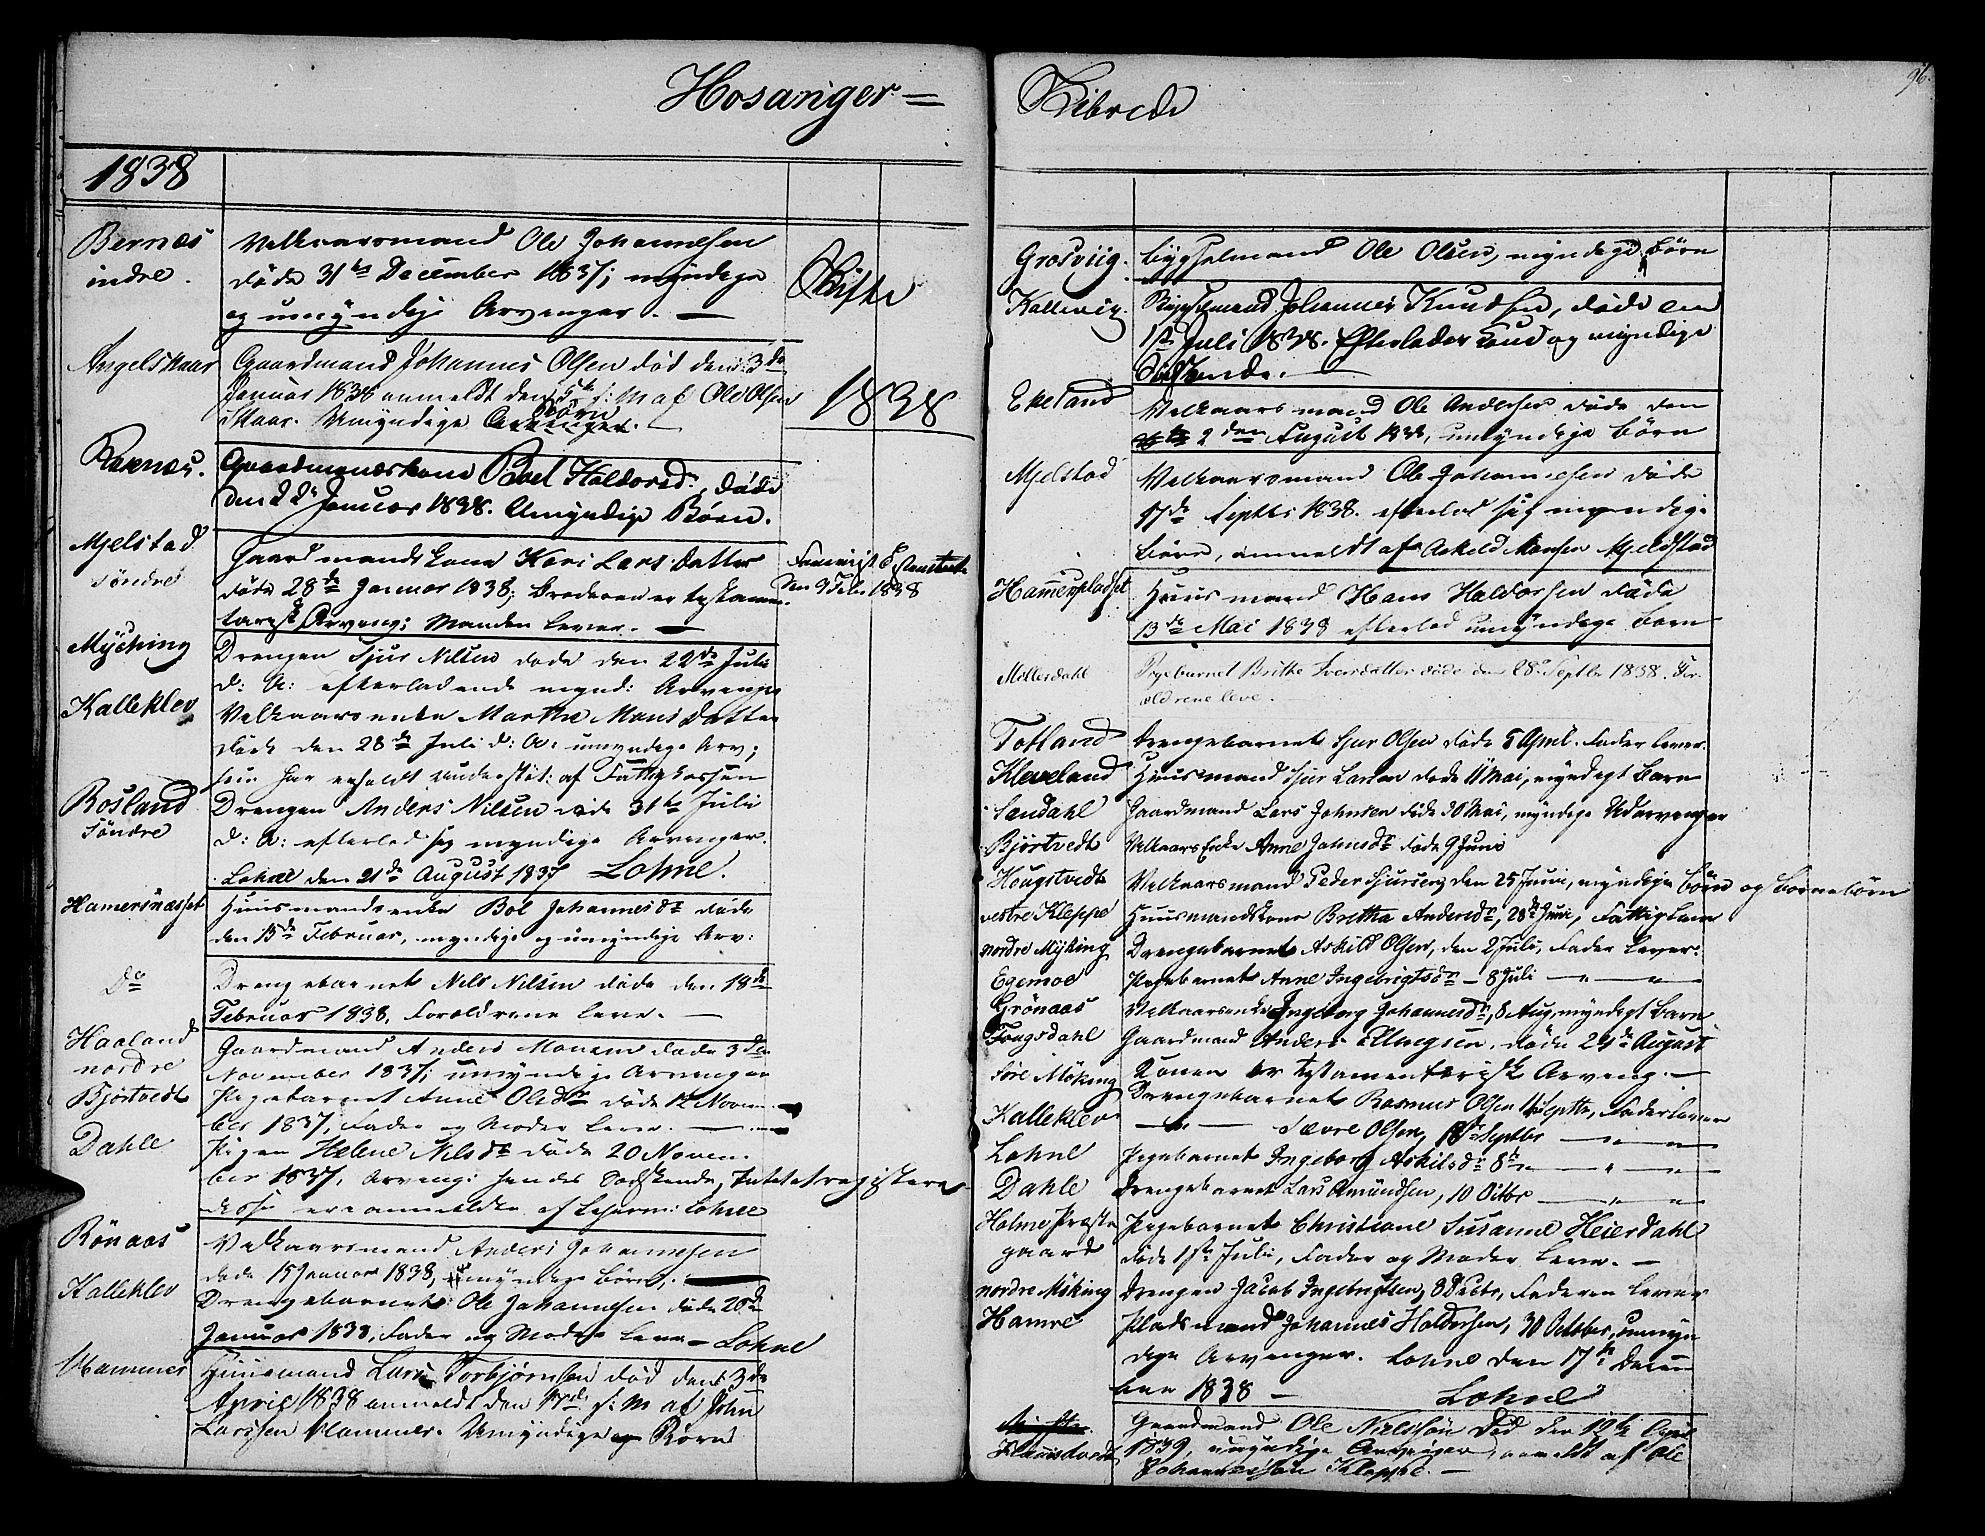 Hosanger =
1838
Bernæs
indre.
Velkaarsmand Ole Johannesen
døde 31te December 1837; myndige
og umyndige Arvenger. —
Skifte
1838
Angelskaar
Gaardmand Johannes Olsen død den 3de
Januar 1838 anmeldt den 5te s: M af Ole Olsen
Skaar. Umyndige Børn
Bernæs.
Gaardmandskone Boel Haldorsd:, døde
den 22de Januar 1838. Umyndige Børn.
Mjelstad
søndre
Gaardmandskone Kari Lars Datter
døde 28de Januar 1838; Broderen er testamen-
tarisk Arving; Manden lever. —
den 9 Febr. 1838
Myching
Drengen Sjur Nilsen døde den 22de Juli
d: A: efterladende mynd: Arvenger
Kalleklev
Velkaarsenke Marthe Mons Datter
døde den 28de Juli d: A: umyndige Arv;
hun har erholdt understøt: af Fattigkassen
Rosland
søndre
Drengen Anders Nilsen døde 31te Juli
d: A: efterlod sig myndige Arvenger.
Lohne den 21de August 1837 Lohne.
Hamersnæsset
Huusmandsenke Bol Johannesdr døde
den 15de Februar, myndige og umyndige Arv:
Do
Drengebarnet Nils Nilsen døde den 18de
Februar 1838, Forældrene leve. —
Haaland
nordre
Gaardmand Anders Monsen døde 3den
November 1837; umyndige Arvenger
Bjørtvedt
Pigebarnet Anne Olsdr døde 12 Novem-
ber 1837, Fader og Moder leve. —
Dahle
Pigen Helene Nilsdr døde 20 Novem-
ber 1837, Arving: hendes Sødskende, Intet at registere
disse ere anmeldte af Lehnsm: Lohne
Rønaas
Velkaarsmand Anders Johannesen
døde 15 Januar 1838, myndige Børn, —
Kalleklev
Drengebarnet Ole Johannesen døde 20de
Januar 1838, Fader og Moder leve — Lohne
Hammer
Huusmand Lars Torbjørnsen død den 3de
April 1838 anmeldt den 17de s: M af John
Larssen Hammer. Umyndige Børn
Skibrede
96.
Grosviig.
Bygselmand Ole Olsen, myndige Børn
Kallevig.
Bygselmand Johannes Knudsen, døde den
1ste Juli 1838. Efterlader og myndige
Sødskende. —
Ekeland
Velkaarsmand Ole Andersen døde den
2den August 1838, umyndige Børn
Mjelstad
Velkaarsmand Ole Johannesen døde
17de Septbr 1838. efterlod sig myndige
Børn, anmeldt af Askeld Monsen Mjeldstad
Hamerspladset
Huusmand Hans Haldorsen døde
13de Mai 1838 efterlod umyndige Børn
Møllerdahl
Pigebarnet Brithe Iversdatter døde den 28de Septbr 1838. For-
ældrene leve.
Totland
Drengebarnet Sjur Olsen døde 5 April. Fader lever.
Kleveland
Huusmand Sjur Larsen døde 11 Mai, myndigt Barn
Sandahl
Gaardmand Lars Johnsen døde 30 Mai, myndige Udarvenger
Bjørtvedt
Velkaars Enke Anne Johnsdr døde 9 Juni
Hougstvedt
Velkaarsmand Peder Sjursen, den 25 Juni, myndige Børn og Børnebørn
vestre Kleppe
Huusmandskone Britha Andersdr, 28de Juni, Fattiglem
nordre Myking
Drengebarnet Askild Olsen, den 2 Juli, Fader lever.
Egemoe
Pigebarnet Anne Ingebrigtsdr — 8 Juli — " — " —
Grønaas
Velkaarsenke Ingeborg Johannesdr, 8 Aug, myndigt Barn
Fougsdahl
Gaardmand Anders Ellingsen, døde 24de August
Konen er testamentarisk Arving. —
søre Möking
Drengebarnet Rasmus Olsen 11 Septbr, Fader lever
Kalleklev
— " — Sævre Olsen, 18de Septbr — " — " —
Lohne
Pigebarnet Ingeborg Askildsdr 8de — " — " —
Dahle
Drengebarnet Lars Amundsen, 10 Octbr — " — " —
Holme Præste
gaard
Pigebarnet Christiane Susanne Heierdahl
døde 1ste Juli, Fader og Moder leve. —
nordre Möking
Drengen Jacob Ingebrigtsen, 8 Octbr, Faderen lever
Hamre
Pladsmand Johannes Haldorsen, 30 October, umyn
dige Arvenger. Lohne den 17de Decem
ber 1838 — Lohne
Gaardmand Ole Nielssøn død den 12te April
1839, umyndige Arvinger, anmeldt af Ole
Johannessøn Kleppe. —